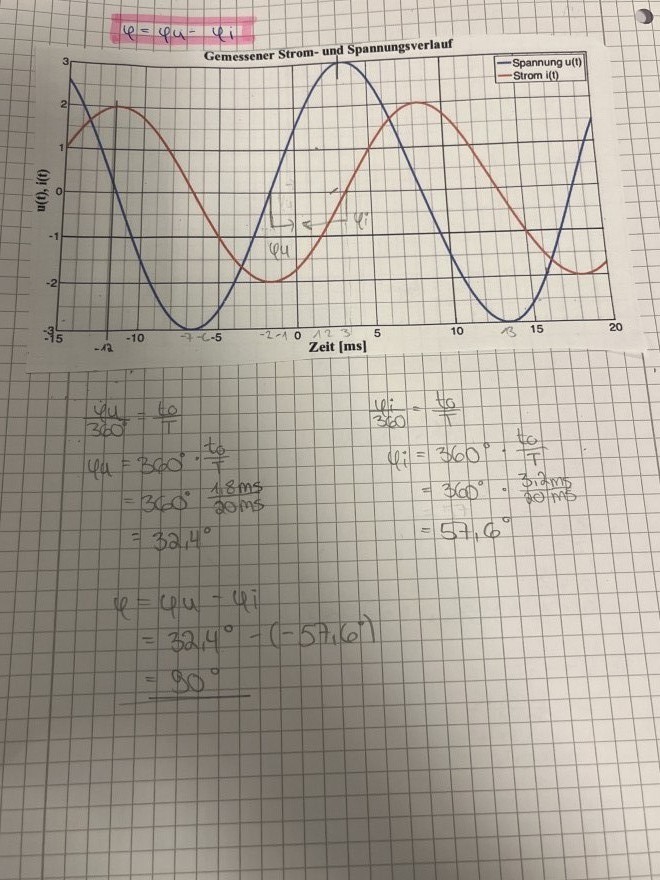 φ = φu - φi
Gemessener Strom- und Spannungsverlauf
Spannung u(t)
Strom i(t)
u(t), i(t)
3
2
1
0
-1
-2
-3
φu
φi
-15 -10 -7 -6 -5 -2 -1 0 1 2 3 5 10 13 15 20
-12
Zeit [ms]
φu/360° = t0/T
φu = 360° · t0/T
= 360° 1,8ms/20ms
= 32,4°
φi/360 = t0/T
φi = 360° · t0/T
= 360° · 3,2ms/20ms
= 57,6°
φ = φu - φi
= 32,4° - (-57,6°)
= 90°